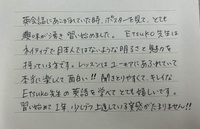 英会話にあこがれていた時、ポスターを見て、とても
興味が湧き習い始めました。Etsuko先生は
ネイティブで日本人ではないような明るさと魅力を
持っています。レッスンはユーモアにあふれていて
本当に楽しくて面白い!!聞きとりやすくて、キレイな
Etsuko先生の英語を学べてとても嬉しいです。
習い始めて1年、少しずつ上達している実感がたまりません!!